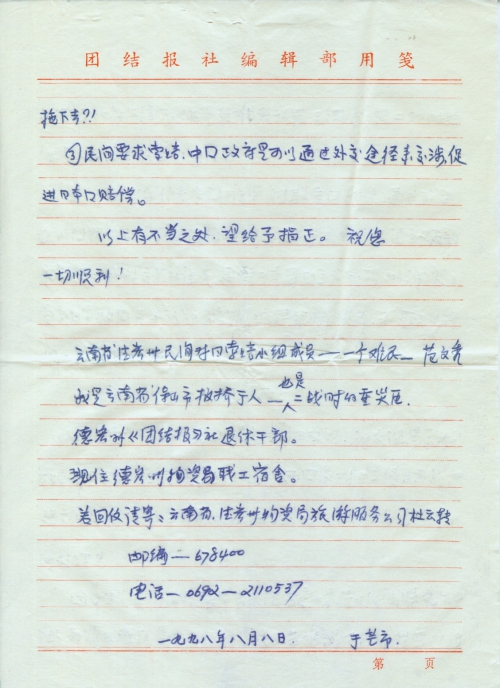 团结报社编辑部用笺
拖下去?!
③民间要求索赔,中国政府是可以通过外交途径来交涉,促
进日本国赔偿。
以上有不当之处,望给予指正。 祝您
一切顺利!
云南省德宏州民间对日索赔小组成员——一个难民— 范文秀
我是云南省保山市板桥于人—也是二战时的重灾区.
德宏州《团结报》社退休干部。
现住德宏州物资局职工宿舍。
若回信请寄:云南省.德宏州物资局旅游服务公司杜云转
邮编—678400
电话—0692—2110537
一九九八年八月八日. 于芒市.
第 页